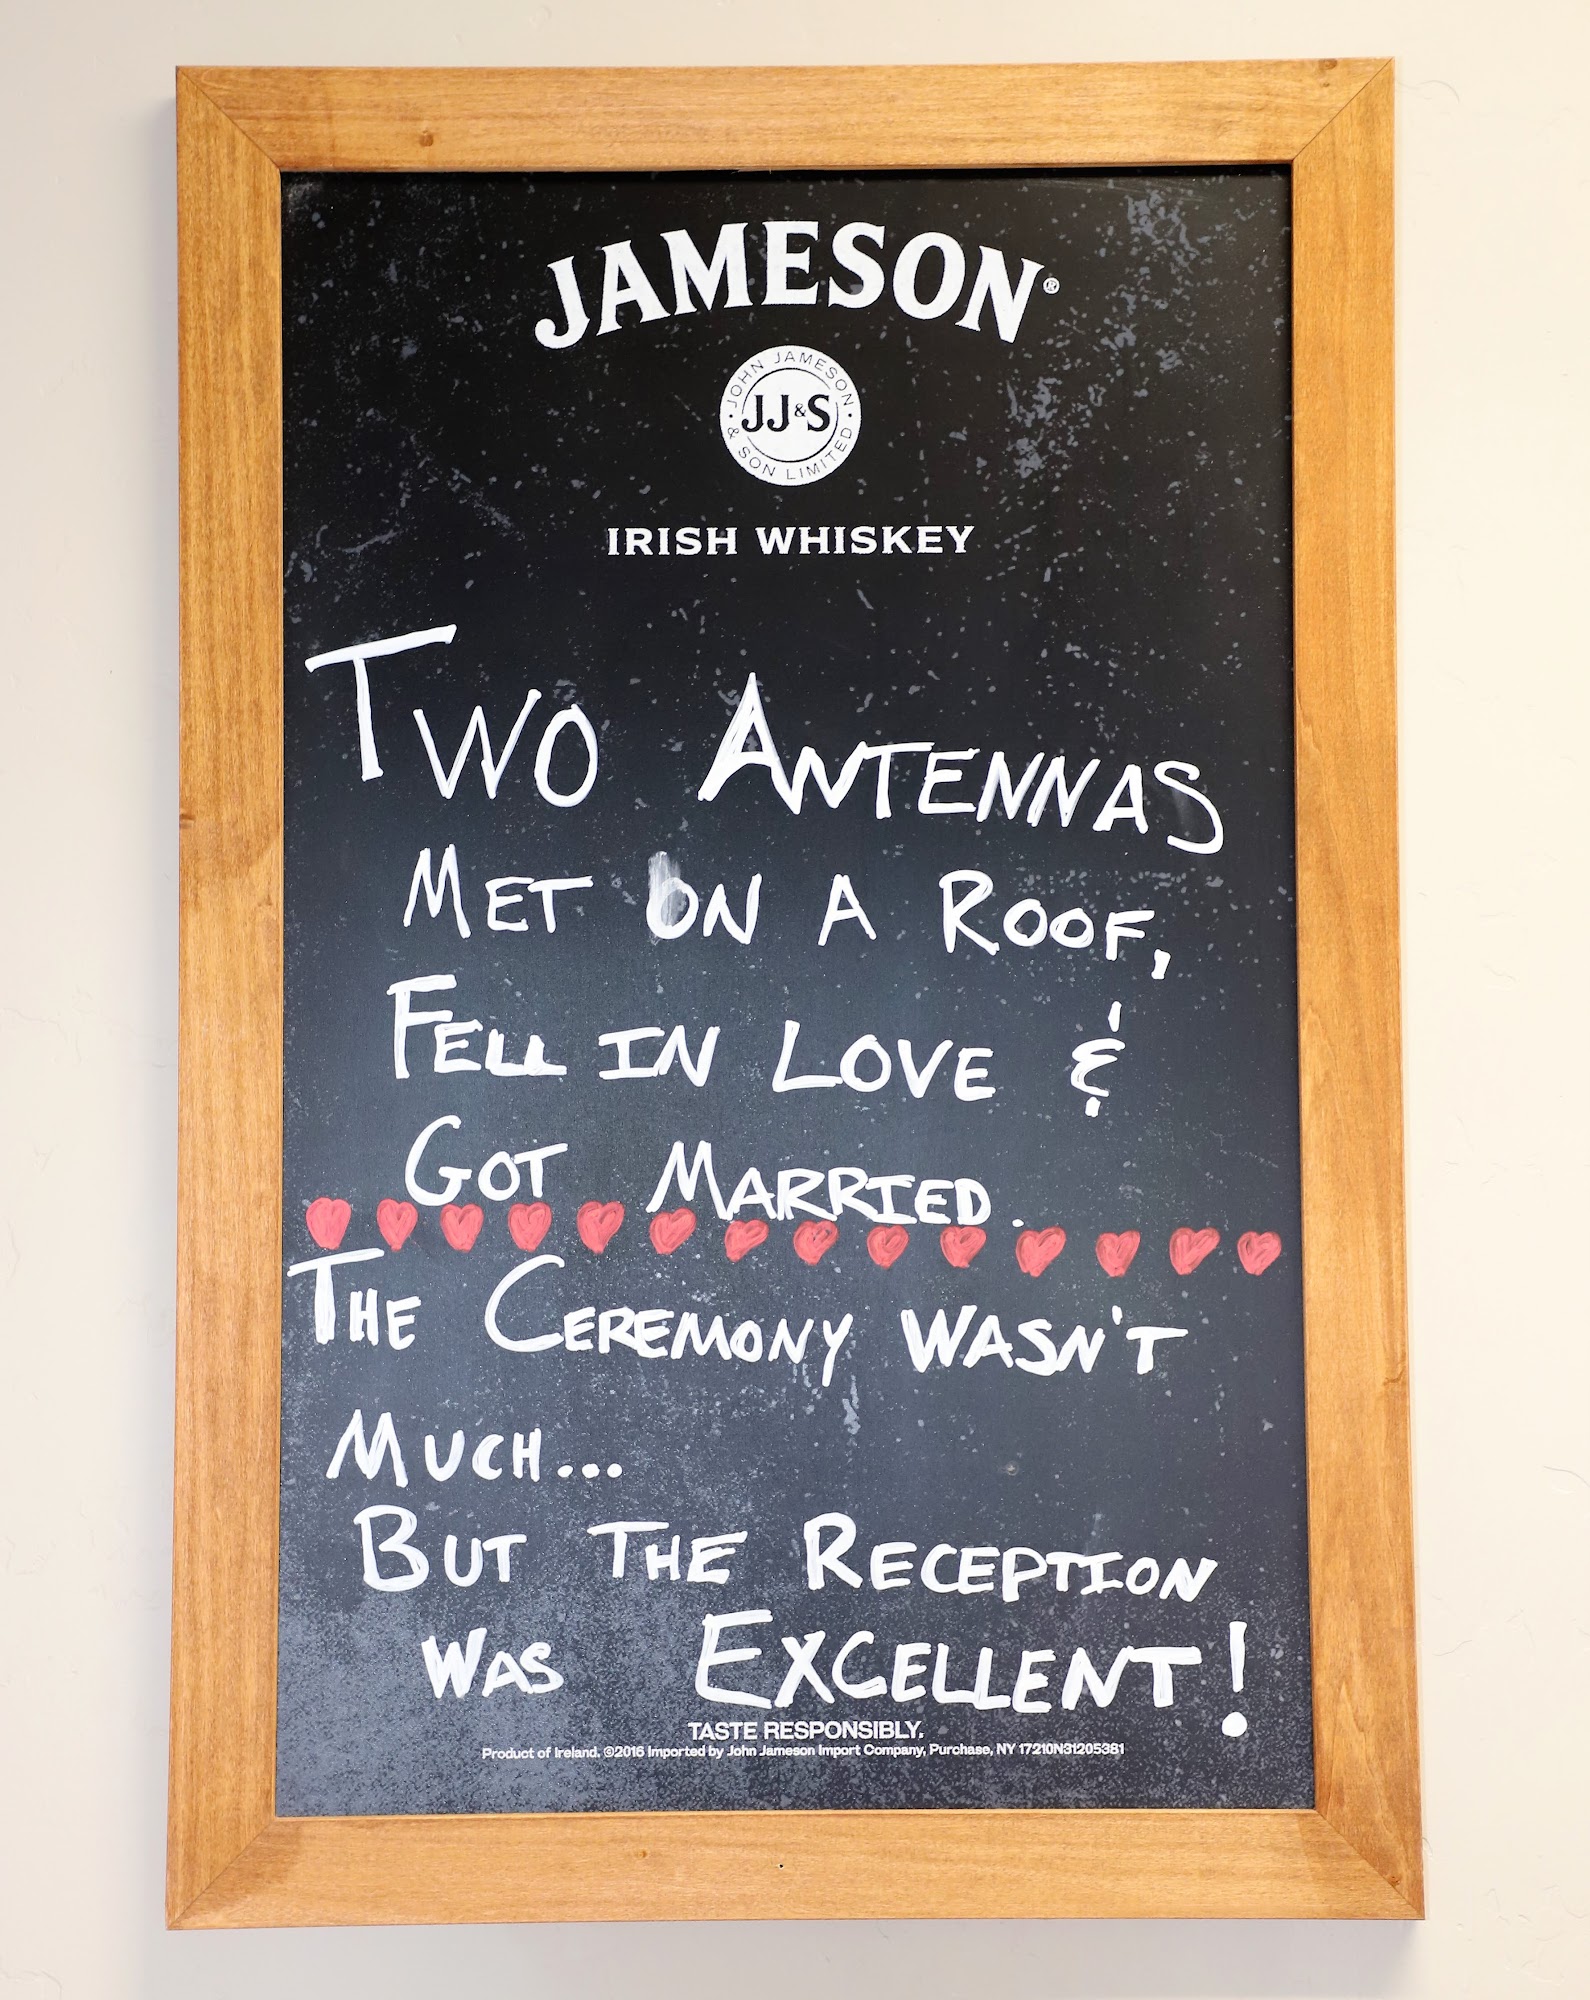 JAMESON®
JOHN JAMESON & SON LIMITED
JJ&S
IRISH WHISKEY
TWO ANTENNAS
MET ON A ROOF,
FELL IN LOVE &
GOT MARRIED.
THE CEREMONY WASN'T
MUCH...
BUT THE RECEPTION
WAS EXCELLENT!
TASTE RESPONSIBLY.
Product of Ireland. ©2016 Imported by John Jameson Import Company, Purchase, NY 17210N31205381